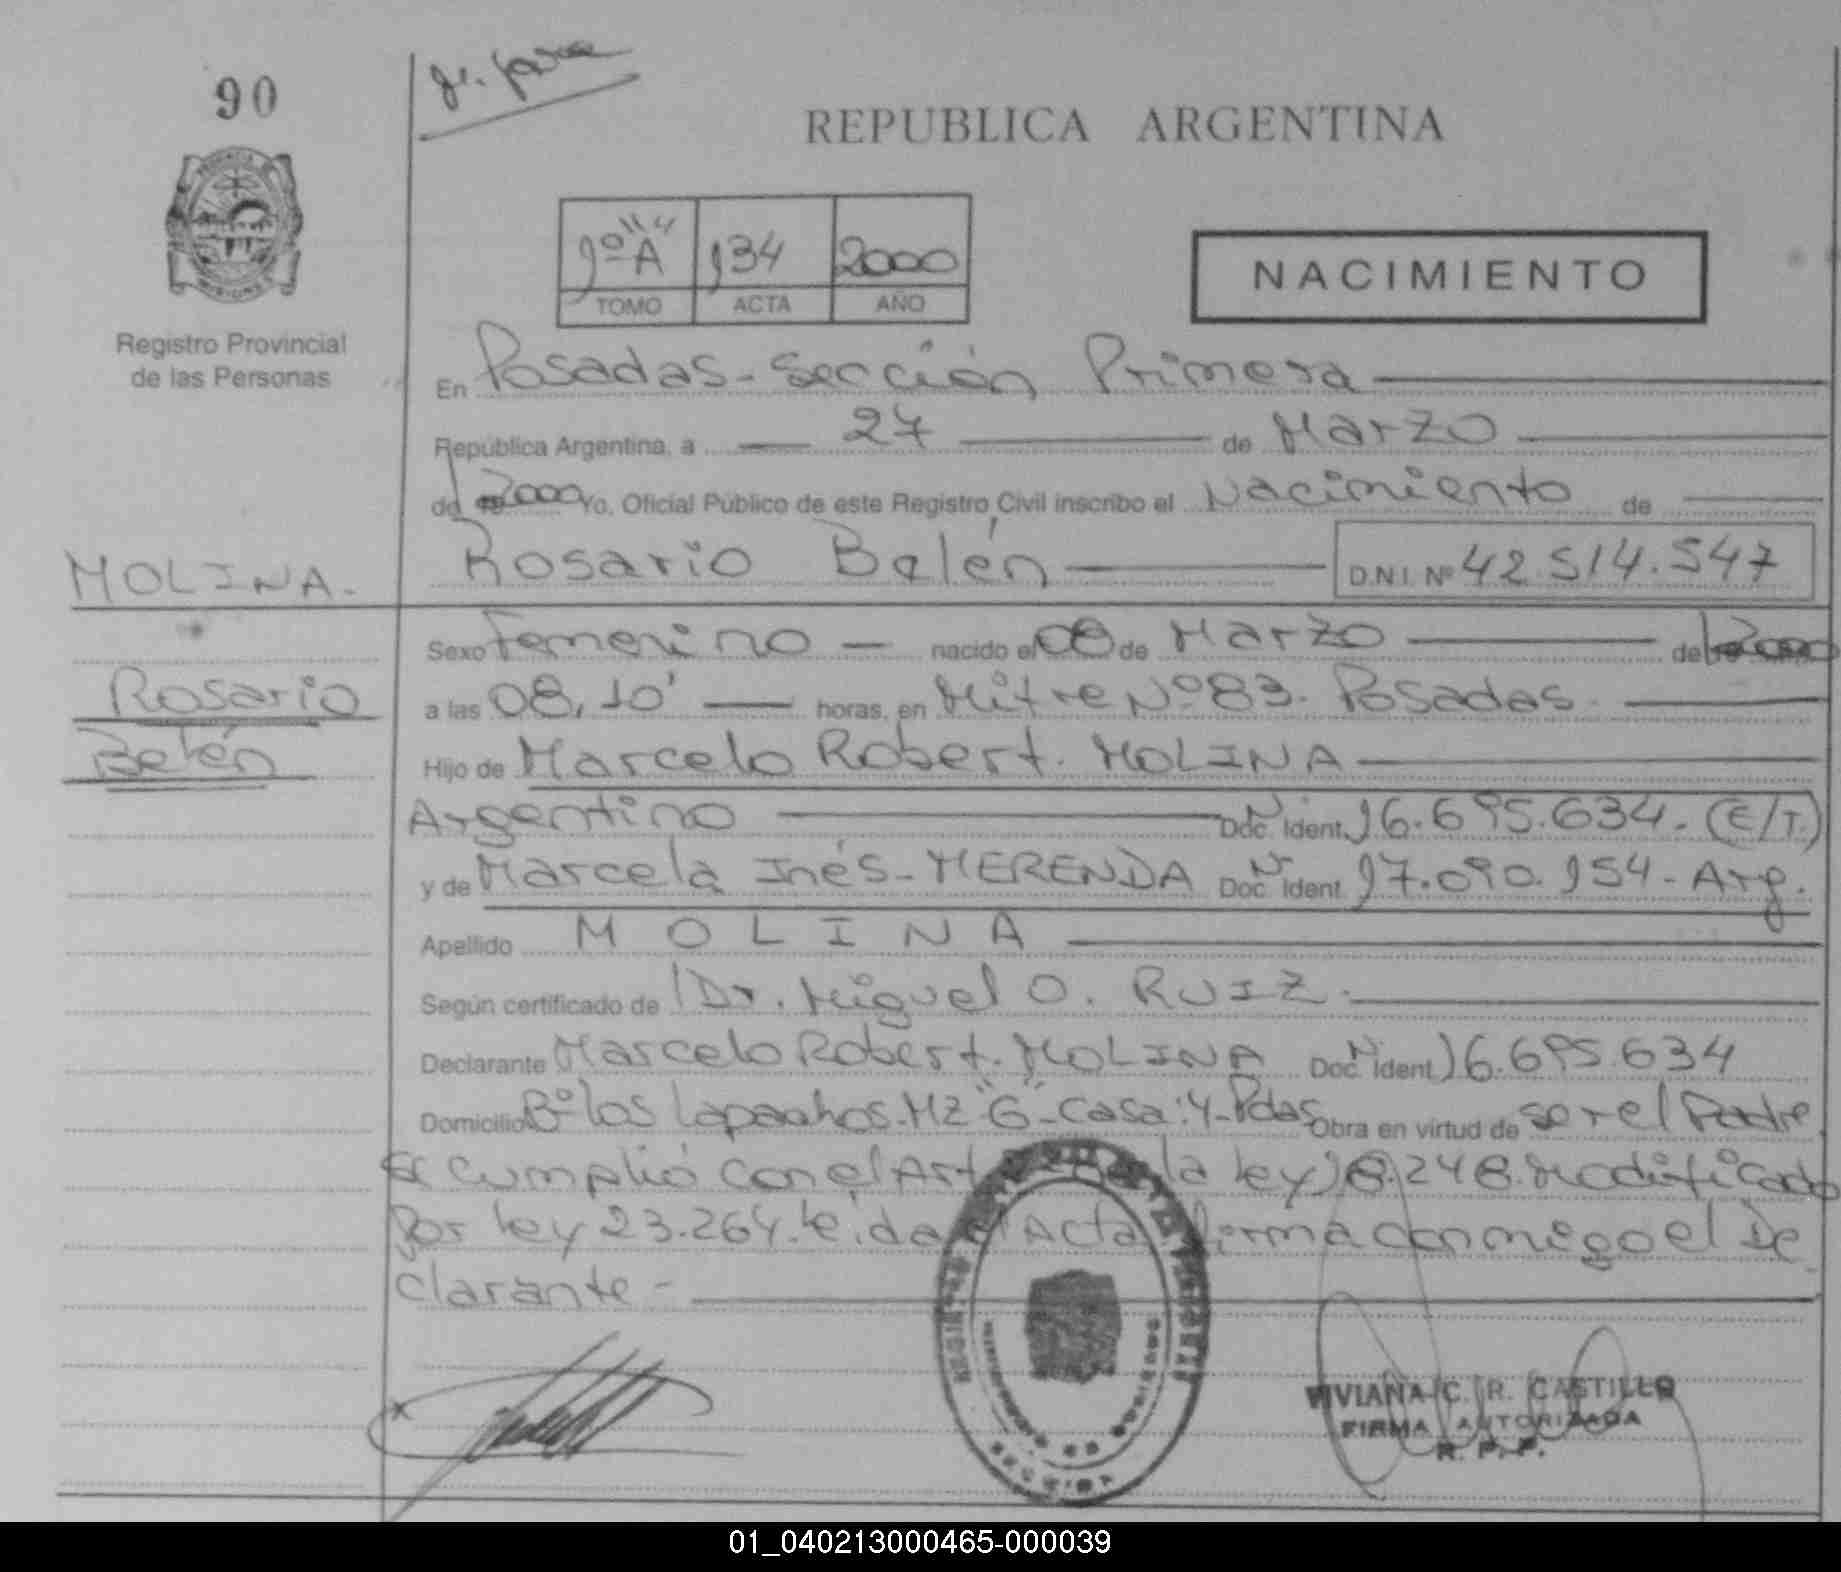 90
REPUBLICA ARGENTINA
1º "A" 134 2000
TOMO ACTA AÑO
NACIMIENTO
Registro Provincial
de las Personas
En Posadas - Sección Primera
República Argentina, a 27 de Marzo
de 2000 Yo, Oficial Público de este Registro Civil inscribo el Nacimiento de
MOLINA.
Rosario Belén D.N.I. Nº 42.514.547
Sexo Femenino nacido el 08 de Marzo de 2000
Rosario
a las 08,10' horas, en Mitre Nº 83. Posadas.
Belén
Hijo de Marcelo Robert. MOLINA
Argentino Doc. Ident. 16.695.634. (E/T.)
y de Marcela Inés - MERENDA Doc. Ident. 17.090.154 - Arg.
Apellido MOLINA
Según certificado de Dr. Miguel O. RUIZ.
Declarante Marcelo Robert. MOLINA Doc. Ident. 16.695.634
Domicilio Bº los Lapachos. Mz "G" - Casa: 4 - Pdas Obra en virtud de ser el Padre
Se Cumplió con el Art la Ley 18.248. Modificado
Por Ley 23.264. Leída el Acta firma conmigo el De
clarante -
VIVIANA C. R. CASTILLO
FIRMA AUTORIZADA
R. P. P.
01_040213000465-000039